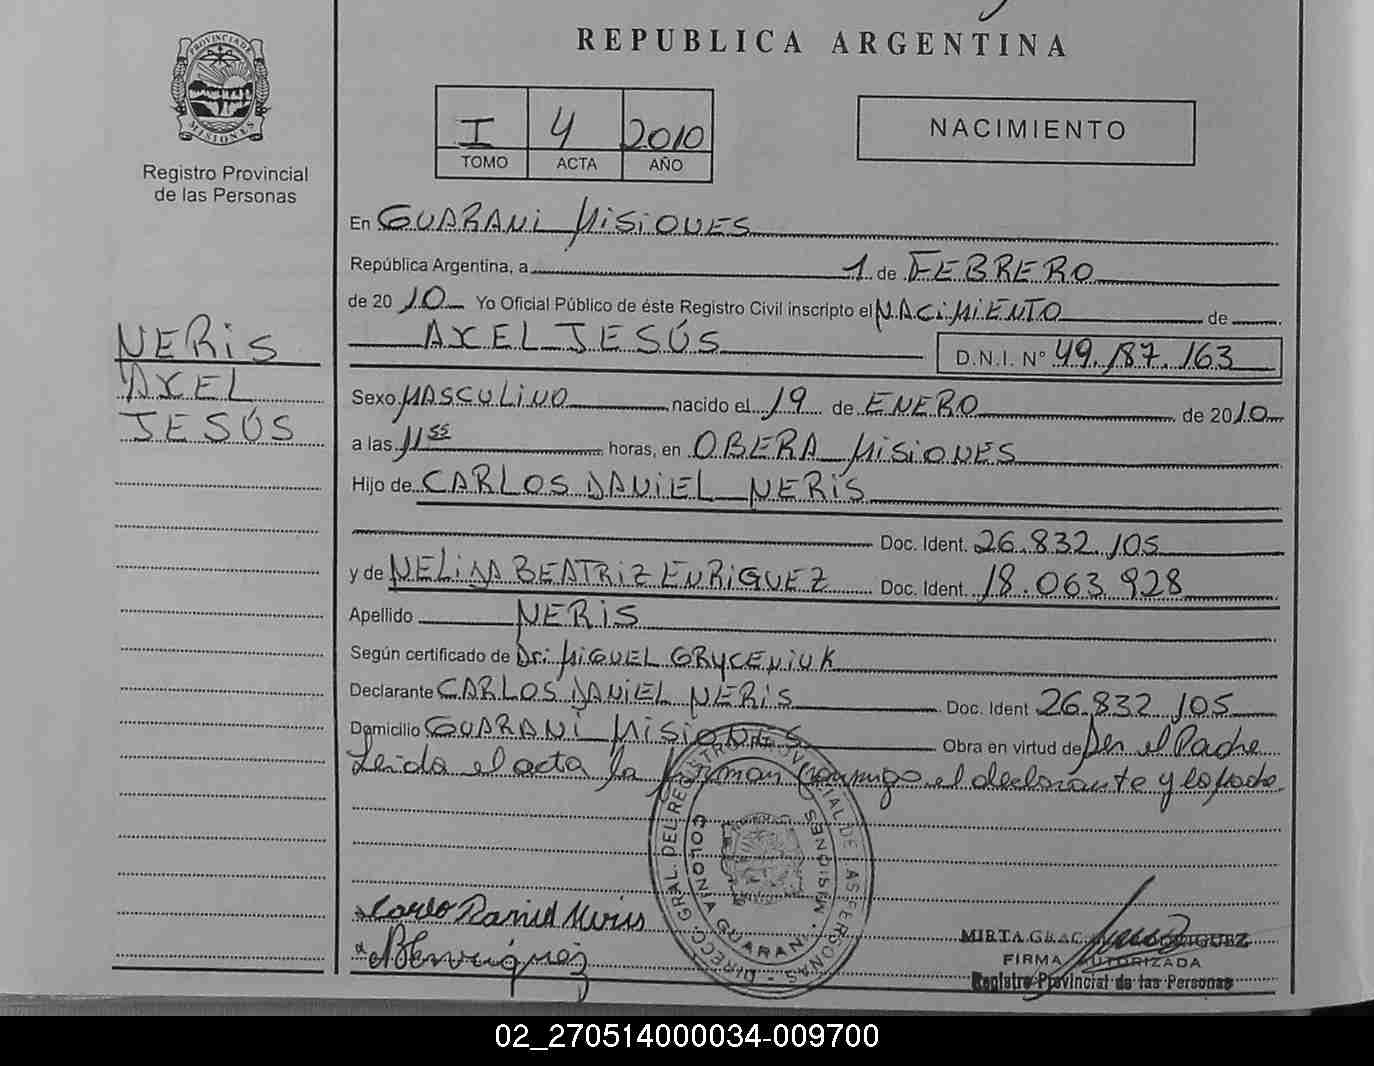 PROVINCIA DE
MISIONES
Registro Provincial
de las Personas
NERIS
AXEL
JESÚS
REPUBLICA ARGENTINA
I 4 2010
TOMO ACTA AÑO
NACIMIENTO
En GUARANI MISIONES
República Argentina, a 1 de FEBRERO
de 2010 Yo Oficial Público de éste Registro Civil inscripto el NACIMIENTO de
AXEL JESÚS D.N.I. Nº 49.187.163
Sexo MASCULINO nacido el 19 de ENERO de 2010
a las 11 55 horas, en OBERA MISIONES
Hijo de CARLOS DANIEL NERIS
Doc. Ident. 26.832.105
y de NELIDA BEATRIZ ENRIGUEZ Doc. Ident. 18.063.928
Apellido NERIS
Según certificado de Dr: MIGUEL GRYCENIUK
Declarante CARLOS DANIEL NERIS Doc. Ident 26.832.105
Domicilio GUARANI MISIONES Obra en virtud de Ser el Padre
Leida el acta la firman conmigo el declarante y la madre
DIRECC. GRAL. DEL REGISTRO PROVINCIAL DE LAS PERSONAS -
COLONIA GUARANI MISIONES
Carlo Daniel Neris
MIRTA GRAC
FIRMA AUTORIZADA
Registro Provincial de las Personas
02_270514000034-009700